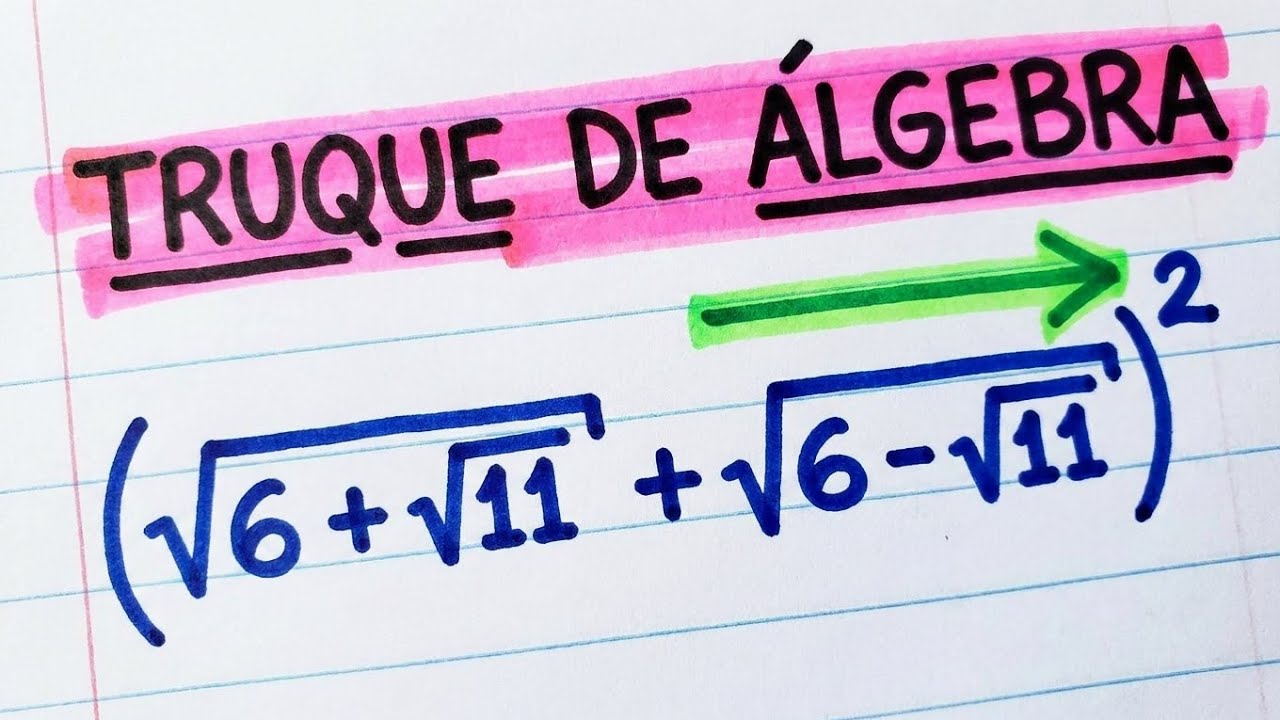 TRUQUE DE ÁLGEBRA
(√(6 + √11) + √(6 - √11))²